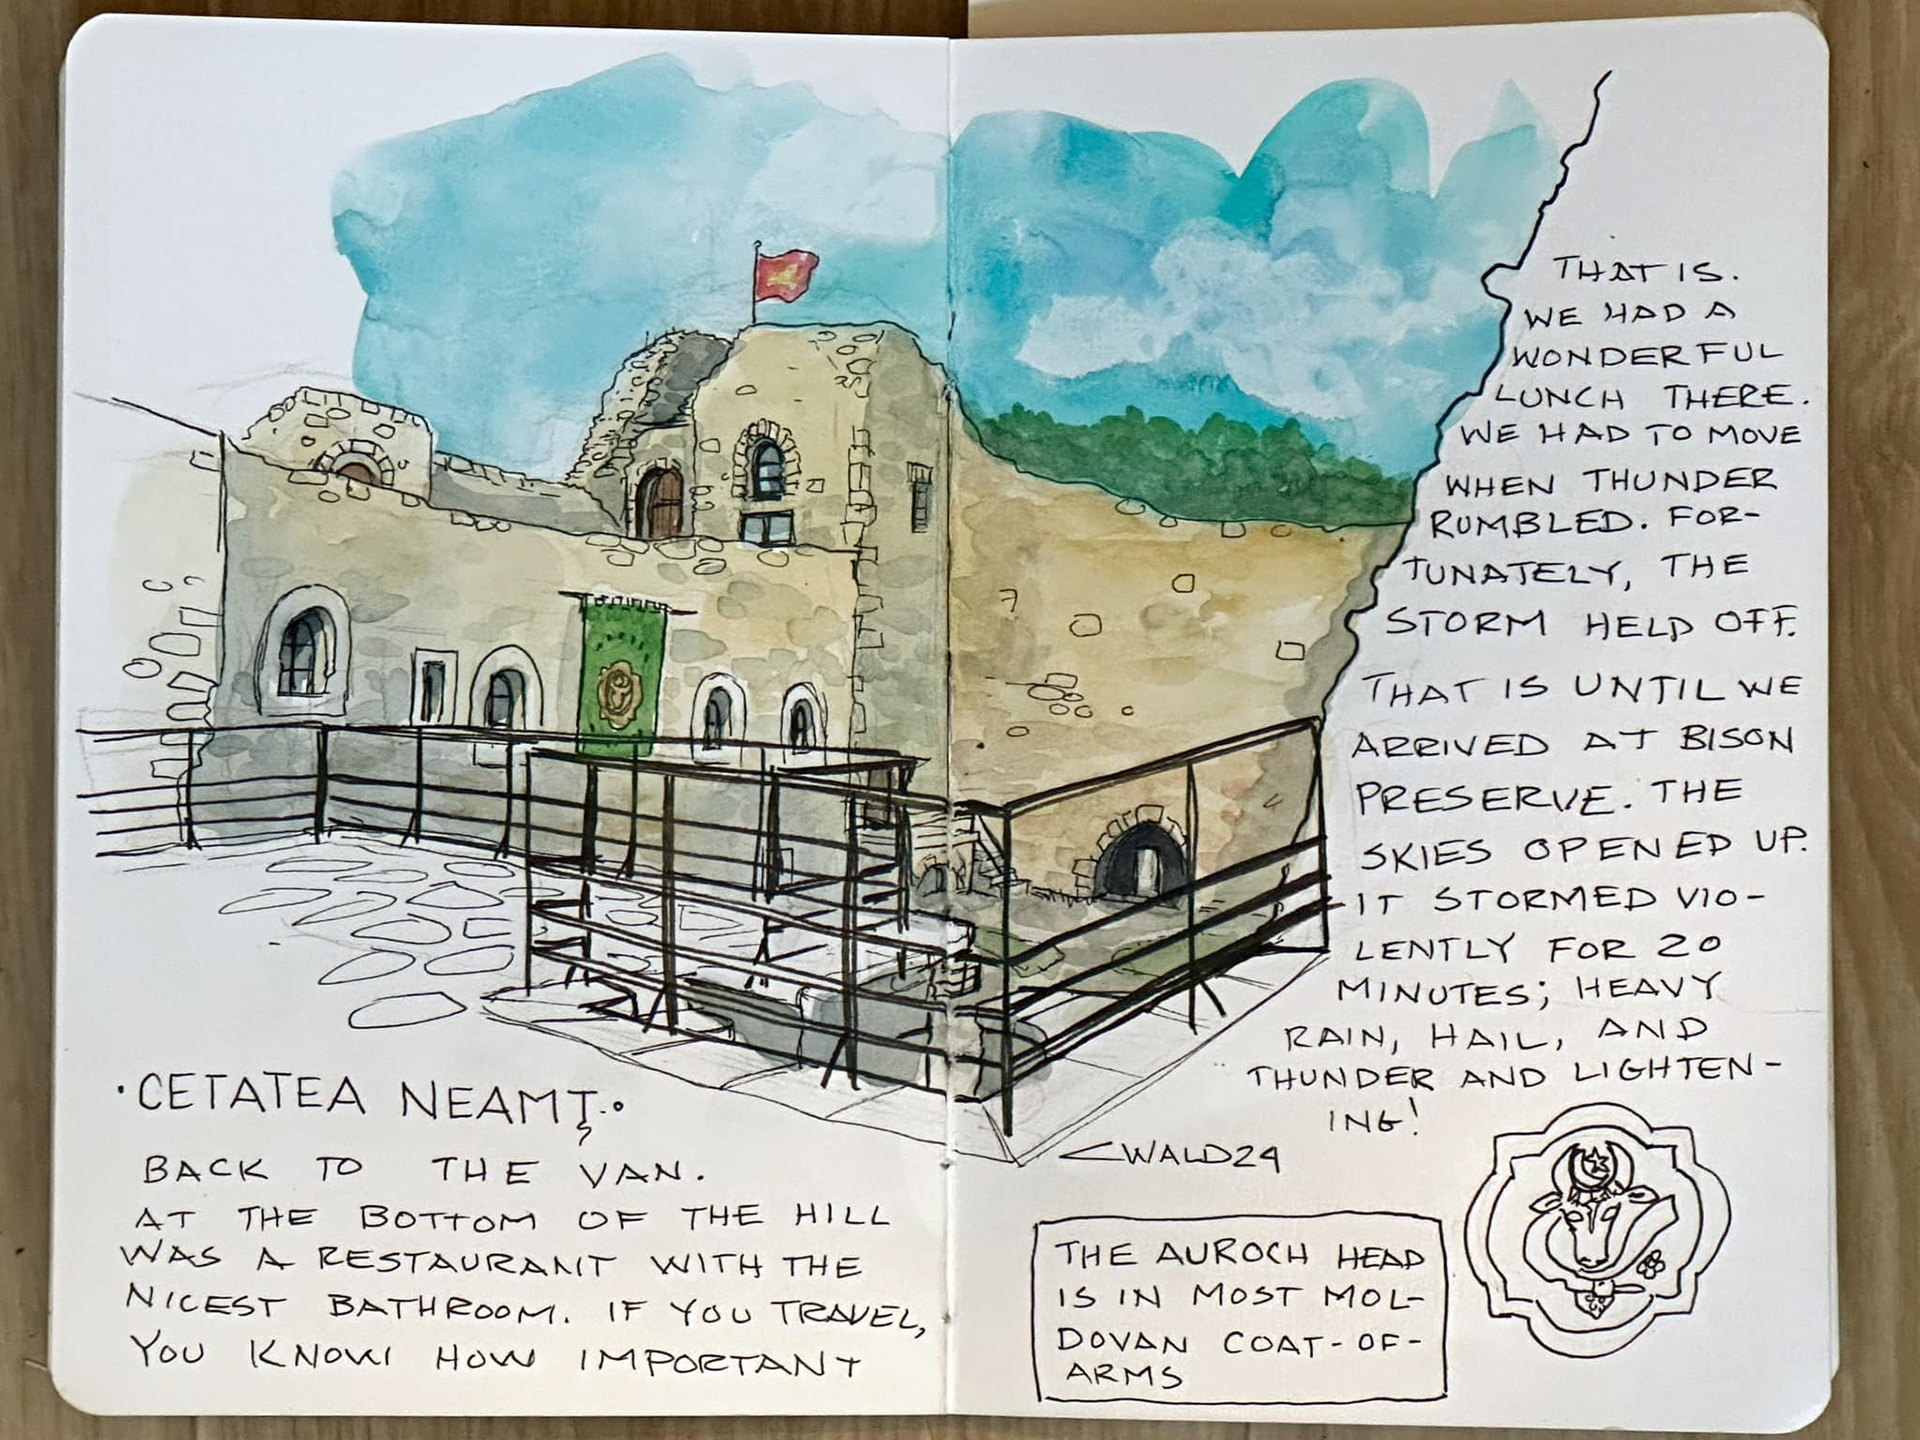 ·CETATEA NEAMȚ·
BACK TO THE VAN.
AT THE BOTTOM OF THE HILL
WAS A RESTAURANT WITH THE
NICEST BATHROOM. IF YOU TRAVEL,
YOU KNOW HOW IMPORTANT
THAT IS.
WE HAD A
WONDERFUL
LUNCH THERE.
WE HAD TO MOVE
WHEN THUNDER
RUMBLED. FOR-
TUNATELY, THE
STORM HELD OFF.
THAT IS UNTIL WE
ARRIVED AT BISON
PRESERVE. THE
SKIES OPENED UP.
IT STORMED VIO-
LENTLY FOR 20
MINUTES; HEAVY
RAIN, HAIL, AND
THUNDER AND LIGHTEN-
ING!
CWALD24
THE AUROCH HEAD
IS IN MOST MOL-
DOVAN COAT-OF-
ARMS